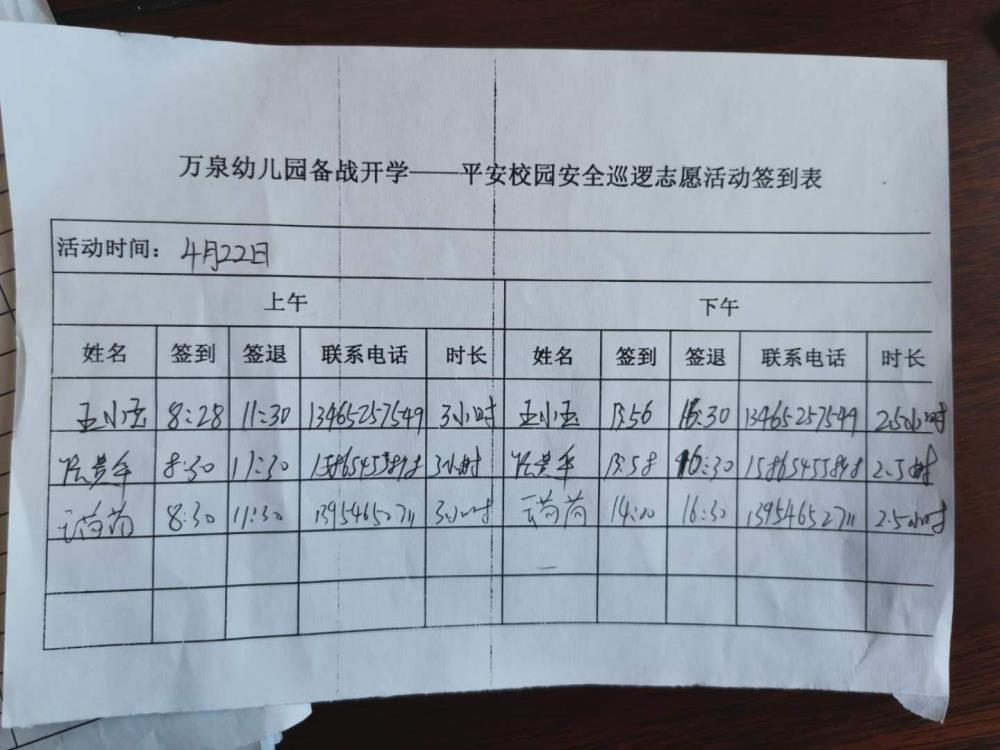 万泉幼儿园备战开学——平安校园安全巡逻志愿活动签到表
活动时间: 4月22日
上午 下午
姓名 签到 签退 联系电话 时长 姓名 签到 签退 联系电话 时长
王小玉 8:28 11:30 13465257549 3小时 王小玉 13:56 16:30 13465257549 2.5小时
8:30 11:30 3小时 13:58 16:30 2.5小时
荷荷 8:30 11:30 13954652711 3小时 荷荷 14:00 16:30 13954652711 2.5小时